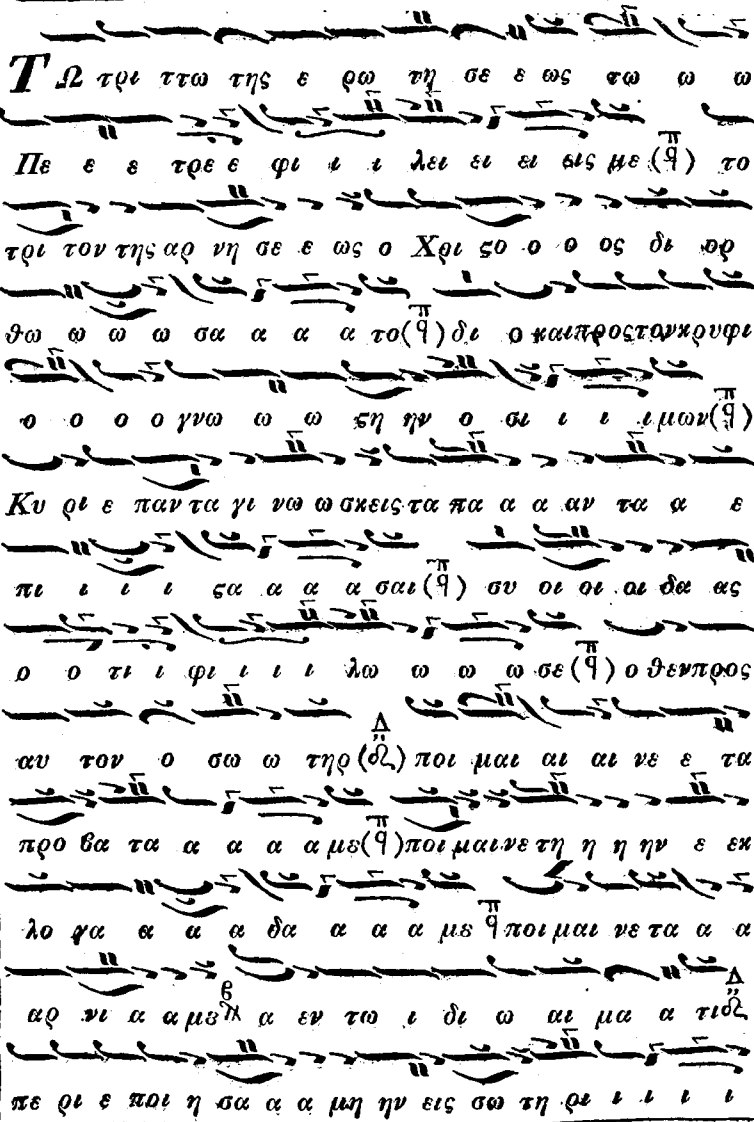 ΤΩ τρι ττω της ε ρω τη σε ε ως τω ω ω
Πε ε ε τρε ε φι ι ι λει ει ει εις με (π ϥ) το
τρι τον της αρ νη σε ε ως ο Χρι ϛο ο ο ος δι ορ
θω ω ω ω σα α α α το (π ϥ) δι ο και προς τον κρυφι
ο ο ο ο γνω ω ω ϛη ην ο σι ι ι ι μων (π ϥ)
Κυ ρι ε παν τα γι νω ω σκεις τα πα α α αν τα α ε
πι ι ι ι ϛα α α α σαι (π ϥ) συ οι οι οι δα ας
ο ο τι ι φι ι ι ι λω ω ω ω σε (π ϥ) ο θεν προς
αυ τον ο σω ω τηρ (Δ) ποι μαι αι αι νε ε τα
προ βα τα α α α α με (π ϥ) ποι μαι νε τη η η ην ε εκ
λο γα α α α δα α α α με π ϥ ποι μαι νε τα α α
αρ νι α α με β α εν τω ι δι ω αι μα α τι Δ
πε ρι ε ποι η σα α α μη ην εις σω τη ρι ι ι ι ι